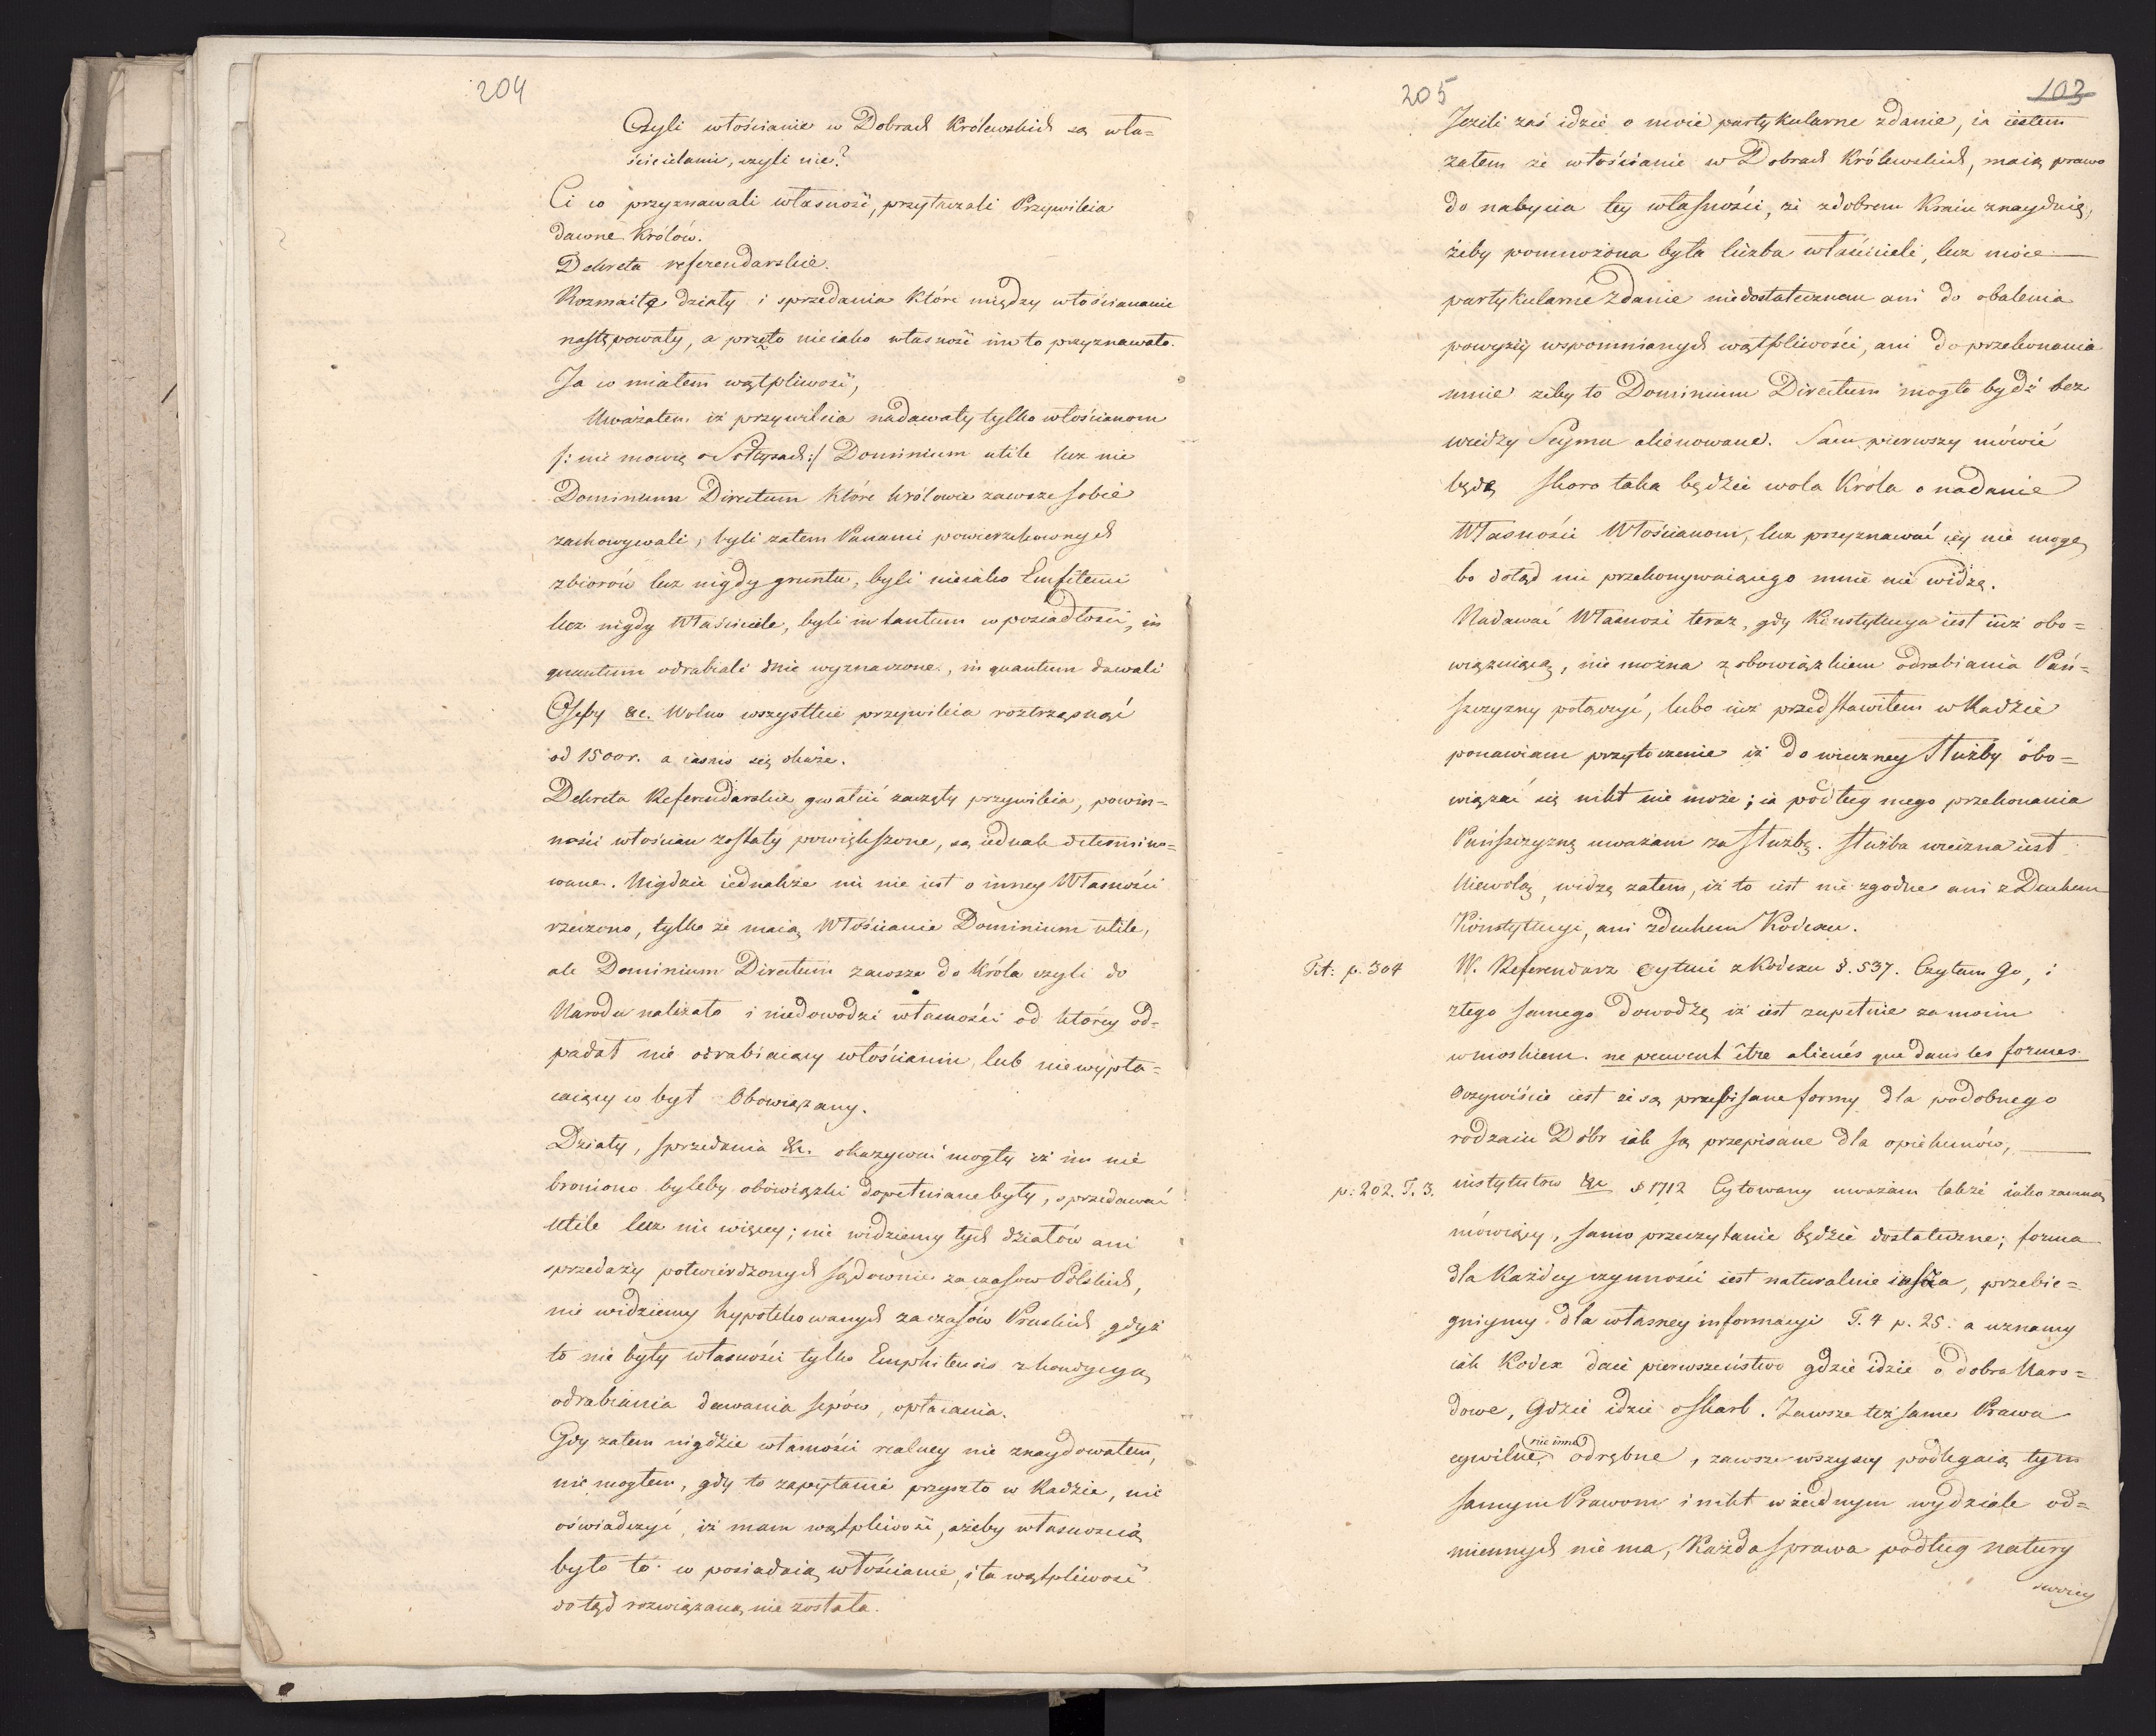 204
Czyli włościanie w Dobrach Królewskich są wła=
ścicielami, czyli nie?
Ci co przyznawali własność, przytaczali Przywileia
dawne Królów.
Dekreta referendarskie.
Rozmaite działy i sprzedania które między włościanami
następowały, a przeto nieiako własność im to przyznawało.
Ja co miałem wątpliwość,
Uważałem iż przywileia nadawały tylko włościanom
/: nie mowię o Sołtysach :/ Dominium utile lecz nie
Dominium Directum które królowie zawsze sobie
zachowywali, byli zatem Panami powierzchownych
zbiorów lecz nigdy gruntu, byli nieiako Emfiteuci
lecz nigdy Właściciele, byli in tantum w posiadłości, in
quantum odrabiali dnie wyznaczone, in quantum dawali
Osepy &c. Wolno wszystkie przywileia roztrząsnąć
od 1500 r. a iasno się okaże.
Dekreta Referendarskie gwałcić zaczęły przywileia, powin=
ności włościan zostały powiększone, są iednak determino=
wane. Nigdzie iednakże nic nie iest o inney Własności
rzeczono, tylko że maią Włościanie Dominium utile,
ale Dominium Directum zawsze do Króla czyli do
Narodu należało i niedowodzi własności od którey od=
padał nie odrabiaiący włościanin, lub niewypła=
caiący co był Obowiązany.
Działy, sprzedania &c. okazywać mogły iż im nie
broniono byleby obowiązki dopełniane były, sprzedawać
utile lecz nic więcey; nie widziemy tych działów ani
sprzedaży potwierdzonych sądownie za czasów Polskich,
nie widziemy hypotekowanych za czasów Pruskich, gdyż
to nie były własności tylko Emphiteusis z kondycyą
odrabiania dawania sepów, opłacania.
Gdy zatem nigdzie własności realney nie znaydowałem,
nie mogłem, gdy to zapytanie przyszło w Radzie, nie
oświadczyć, iż mam wątpliwość, ażeby własnością
było to co posiadaią włościanie, i ta wątpliwość
dotąd rozwiązaną nie została.
205
103
Jeżeli zaś idzie o moie partykularne zdanie, ia iestem
zatem że włościanie w Dobrach Królewskich, maią prawo
do nabycia tey własności, że z dobrem Kraiu znayduię,
żeby pomnożona była liczba właścicieli, lecz moie
partykularne zdanie niedostateczne ani do obalenia
powyżey wspomnianych wątpliwości, ani do przekonania
mnie żeby to Dominium Directum mogło bydź bez
wiedzy Seymu alienowane. Sam pierwszy mówić
będę skoro taka będzie wola Króla o nadanie
Własności Włościanom, lecz przyznawać iey nie mogę,
bo dotąd nic przekonywaiącego mnie nie widzę.
Nadawać Własność teraz, gdy Konstytucya iest iuż obo=
wiązuiącą, nie można z obowiązkiem odrabiania Pań=
szczyzny połączyć, lubo iuż przedstawiłem w Radzie
ponawiam przytoczenie iż do wieczney Służby obo=
wiązać się nikt nie może; ia podług mego przekonania
Pańszczyznę uważam za Służbę. Służba wieczna iest
Niewolą, widzę zatem, iż to iest nie zgodne ani z Duchem
Konstytucyi, ani z duchem Kodexu.
Tit: p. 304
W. Referendarz cytuie z Kodexu §. 537. Czytam Go, i
z tego samego dowodzę iż iest zupełnie za moim
wnioskiem. ne peuvent être alienés que dans les formes.
Oczywiście iest że są przepisane formy dla podobnego
rodzaiu Dóbr iak są przepisane dla opiekunów,
p: 202. T. 3.
instytutow &c § 1712 Cytowany uważam także iako za mną
mówiący, samo przeczytanie będzie dostateczne; forma
dla Każdey czynności iest naturalnie insza, przebie=
gniymy dla własney informacyi T. 4 p. 25: a uznamy
iak Kodex daie pierwszeństwo gdzie idzie o dobra Naro=
dowe, Gdzie idzie o Skarb. Zawsze też same Prawa
cywilne, nie inne odrębne, zawsze wszyscy podlegaią tym
samym Prawom i nikt w żadnym wydziale od=
miennych nie ma, Każda sprawa podług natury
swoiey